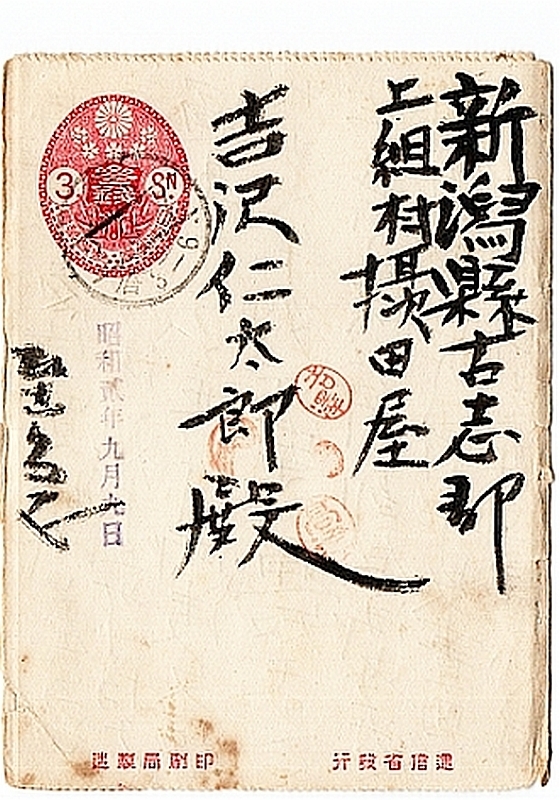 新潟縣古志郡
上組村摂田屋
吉沢仁太郎殿
昭和貳年九月九日
3
Sɴ
遞信省發行
印刷局製造